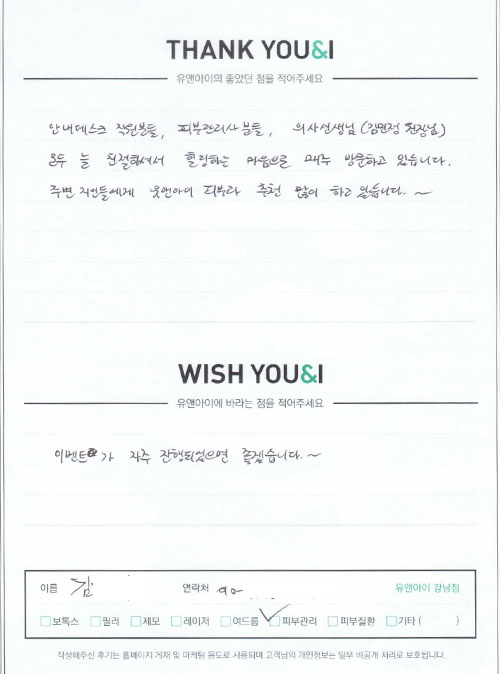 THANK YOU&I
유앤아이의 좋았던 점을 적어주세요
안내데스크 직원분들, 피부관리사 분들, 의사선생님 (김민정 원장님)
모두 늘 친절하셔서 힐링하는 마음으로 매주 방문하고 있습니다.
주변 지인들에게 유앤아이 피부과 추천 많이 하고 있습니다. ~
WISH YOU&I
유앤아이에 바라는 점을 적어주세요
이벤트가 자주 진행되었으면 좋겠습니다. ~
이름 김 연락처 유앤아이 강남점
보톡스 필러 제모 레이저 여드름 피부관리 피부질환 기타 ( )
작성해주신 후기는 홈페이지 게재 및 마케팅 용도로 사용되며 고객님의 개인정보는 일부 비공개 처리로 보호됩니다.